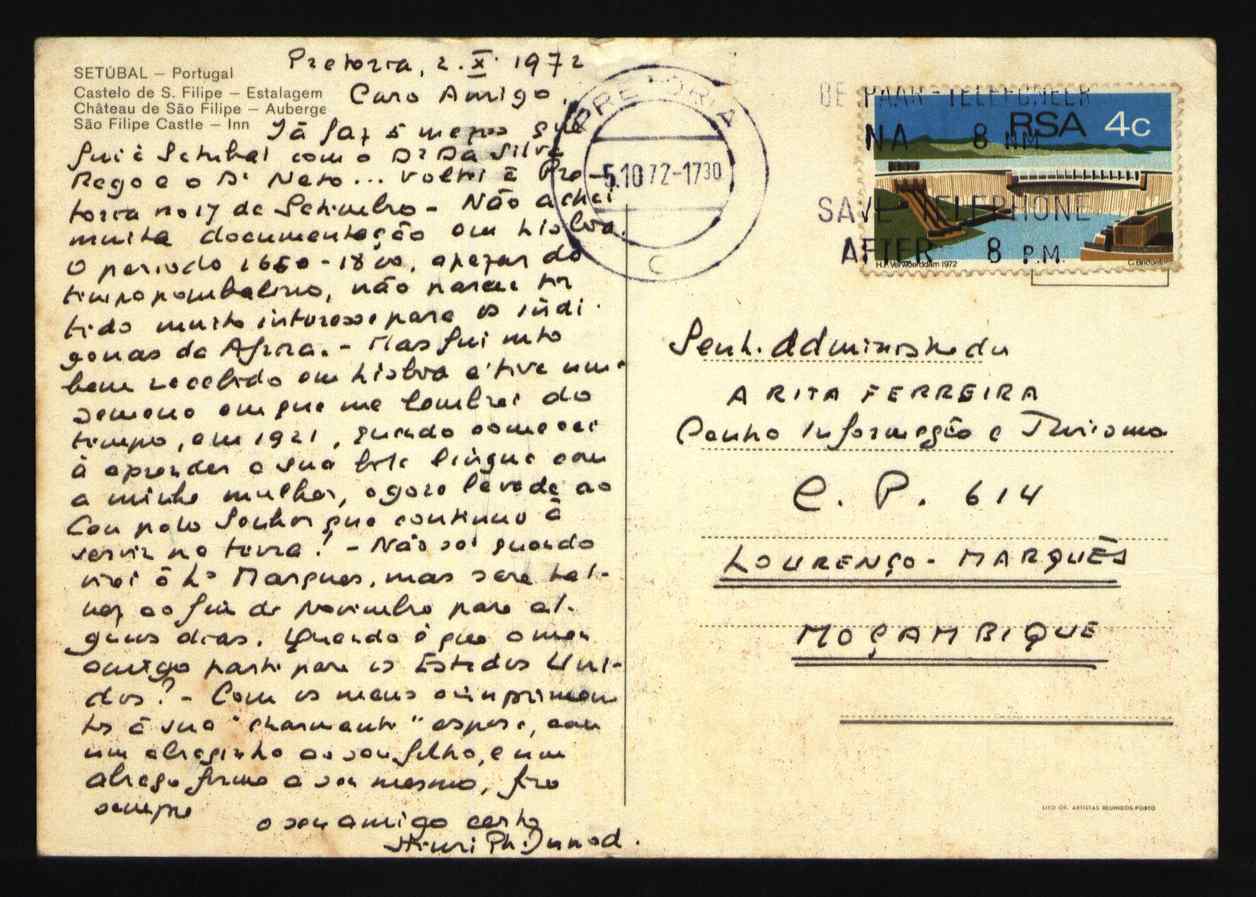 SETÚBAL – Portugal
Castelo de S. Filipe – Estalagem
Château de São Filipe – Auberge
São Filipe Castle – Inn
Pretoria, 2.X.1972
Caro Amigo,
Já faz 5 mezes que
fui à Setubal com o Dr Da Silva
Rego e o Dr Neto... Voltei à Pre-
toria no 17 de Setembro – Não achei
muita documentação em Lisboa.
O periodo 1650-1800, apezar do
tempo pombalino, não parece ter
tido muito interesse para os indi-
genas da Africa. – Mas fui mto
bem recebido em Lisboa e tive uma
semana em que me lembrei do
tempo, em 1921, quando comecei
à aprender a sua bela lingua com
a minha mulher, agora levada ao
Ceu pelo Senhor que continuo à
servir na terra! – Não sei quando
virei à Lço Marques, mas sera tal-
vez ao fim de Novembro para al-
guns dias. Quando é que o meu
amigo parte para os Estados Uni-
dos? – Com os meus cumprimen-
tos à sua "charmante" esposa, com
um abracinho ao seu filho, e um
abraço firme a si mesmo, fico
sempre
o seu amigo certo
Henri Ph. Junod.
PRETORIA
-5.10 72-1730
C
BEL SPAAR-TELEFONEER
NA 8 NM.
SAVE-TELEPHONE
AFTER 8 P.M.
RSA 4c
H.F. Verwoerddam 1972
Senh. Administrador
A RITA FERREIRA
Centro Informação e Turismo
C. P. 614
LOURENÇO-MARQUÊS
MOÇAMBIQUE
LITO OF. ARTISTAS REUNIDOS-PORTO